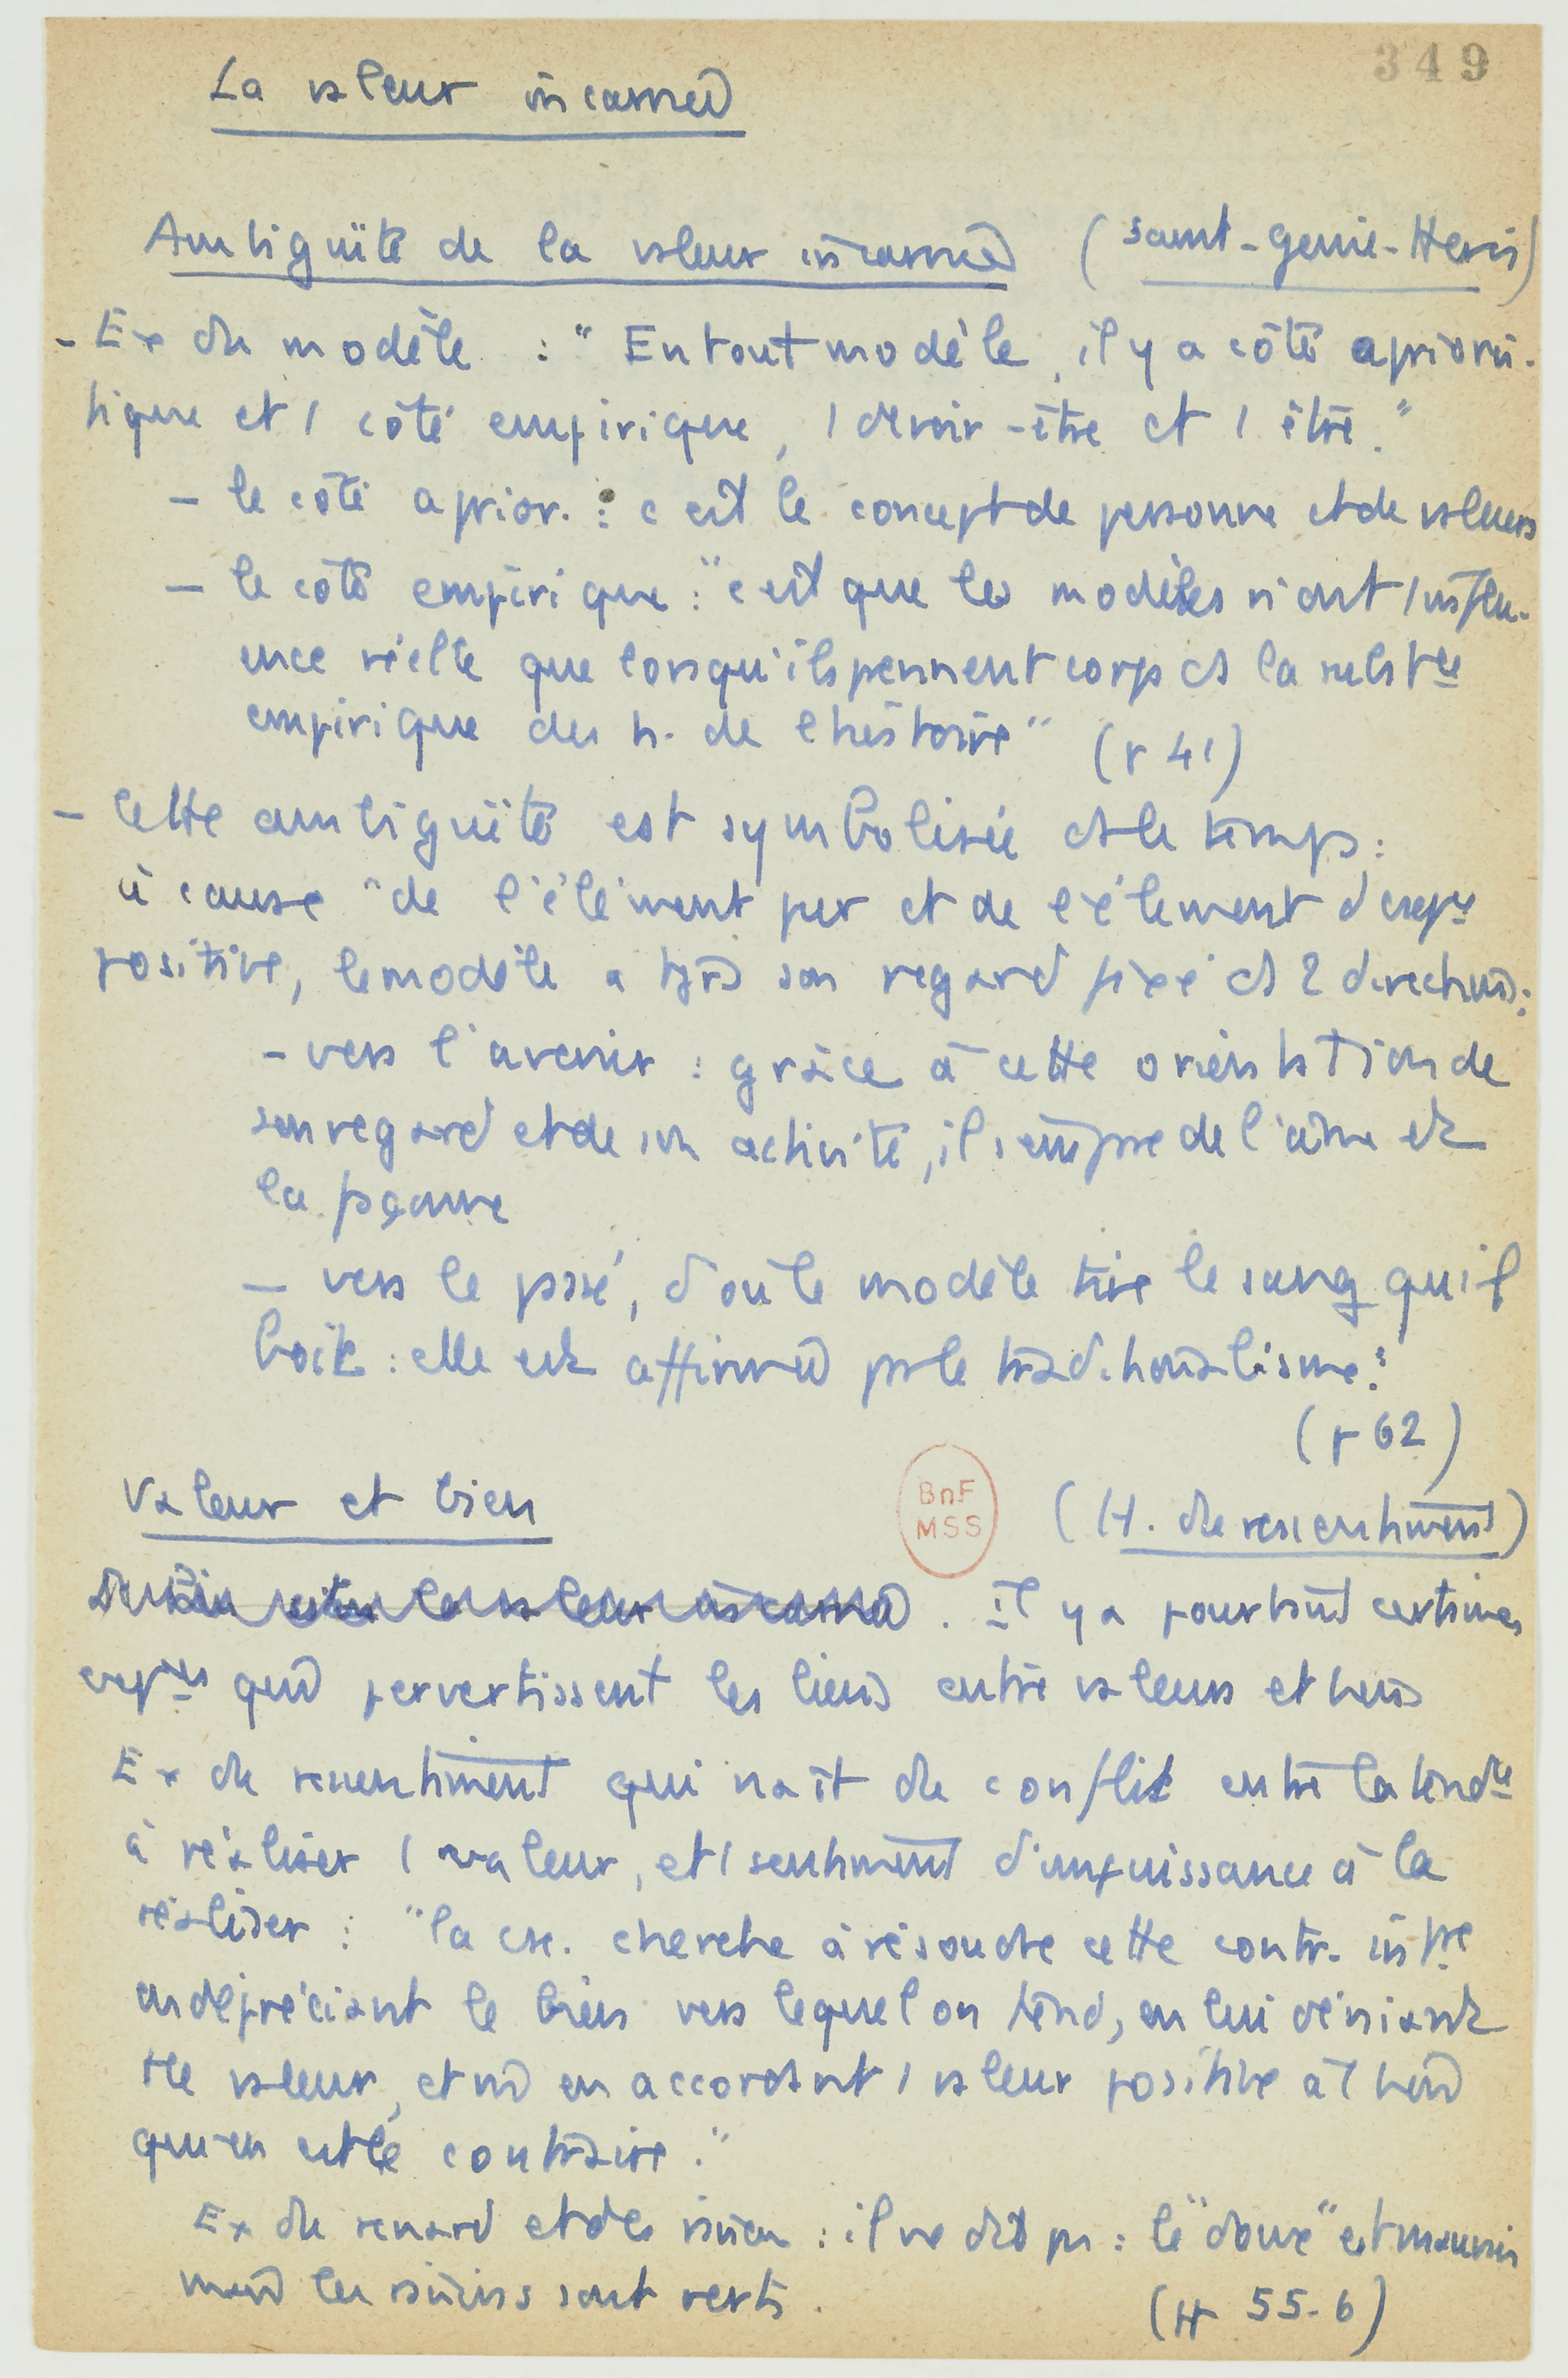 349
La valeur incarnée
Ambiguïté de la valeur incarnée (Saint-Génie-Héros)
- Ex du modèle : "En tout modèle, il y a côté aprioris-
tique et 1 côté empirique, 1 devoir-être et 1 être."
- le côté aprior. : c'est le concept de personne et de valeurs
- le côté empirique : "c'est que les modèles n'ont 1 influ-
ence réelle que lorsqu'ils prennent corps ds la substce
empirique des h. de l'histoire" (p 41)
- Cette ambiguïté est symbolisée ds le temps :
à cause "de l'élément pur et de l'élément d'expce
positive, le modèle a tjrs son regard fixé ds 2 directions :
- vers l'avenir : grâce à cette orientation de
son regard et de son activité, il s'empare de l'âme et
la façonne
- vers le passé, d'où le modèle tire le sang qu'il
boit : elle est affirmée par le traditionalisme."
(p 62)
Valeur et bien (H. du ressentiment)
BnF
MSS
. Il y a pourtant certaines
expces qui pervertissent les liens entre valeurs et biens
Ex du ressentiment qui naît du conflit entre la tendce
à réaliser 1 valeur, et 1 sentiment d'impuissance à la
réaliser : "la csc. cherche à résoudre cette contr. intre
en dépréciant le bien vers lequel on tend, en lui déniant
tte valeur, et en accordant 1 valeur positive à 1 bien
qui en est le contraire."
Ex du renard et des raisins : il ne dit pas : le "doux" est mauvais
mais les raisins sont verts. (H 55-6)